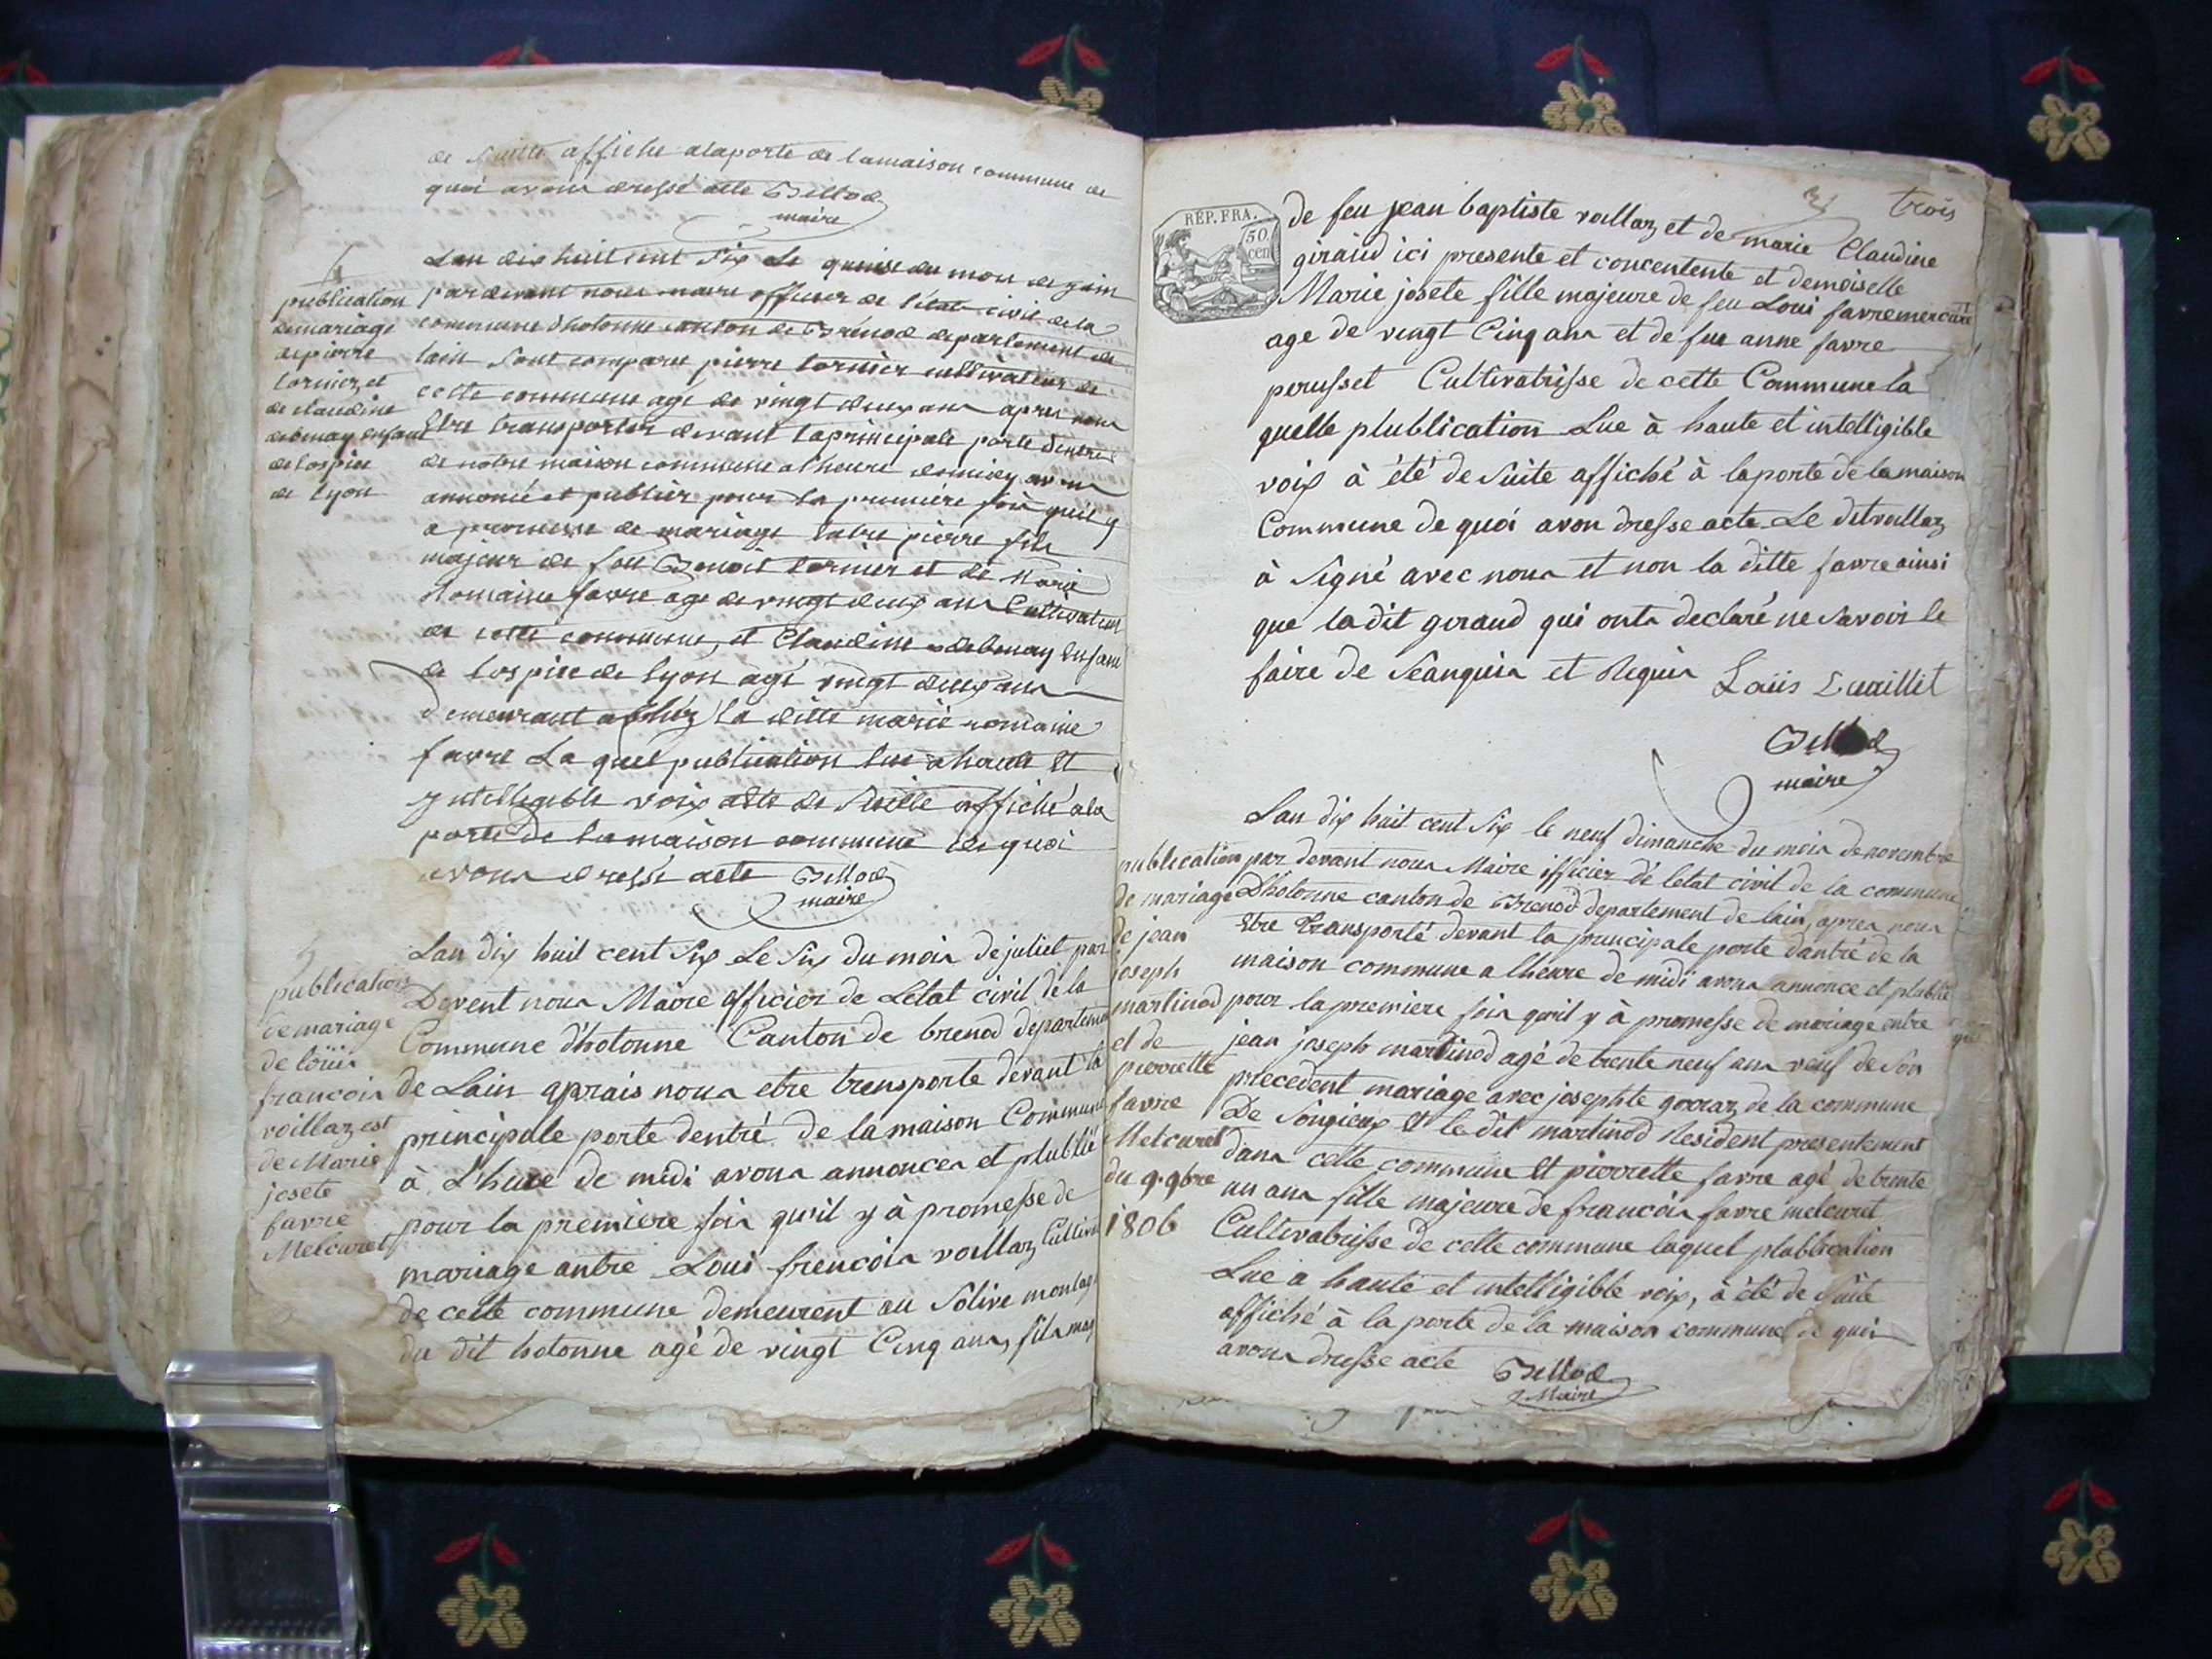 de suitte affiche alaporte de lamaison commune de
quoi avons dressé acte Billod
maire
Lan dix huit cent six Le quinse du mois de juin
pardevant nous maire officier de l'état civil de la
commune d'hotonne canton de Brénod departement de
lain sont comparus pierre tornier cultivateur de
cette commune age de vingt deux ans apres nous
Etre transporter devant laprincipale porte dentrer
de notre maison commune alheure demidy avons
annoncé et publier pour la premiere fois quil y
a promesse de mariage Entre pierre fils
majeur de feu Benoit tornier et de Marie
Romaine favre age de vingt deux ans Cultivateur
de cette commune, et Claudine debenay Enfant
de lospice de lyon agé vingt deux ans
demeurant a chéz la ditte marie romaine
favre La quel publication lue ahaute Et
yntelligeble voix aété de Suitte affiché ala
porte de lamaison commune de quoi
avons dressé acte Billod
maire
publication
demariage
depierre
tornier et
de claudine
debenay enfant
delospice
de lyon
Lan dix huit cent six Le Six du mois dejuliet par
Devent nous Maire officier de Létat civil de la
Commune d'hotonne Canton de brenod departement
de Lain aprais nous etre transporte devant la
principale porte dentré de la maison Commune
à L'heure de midi avons annoncer et plublié
pour la premiere fois qu'il y à promesse de
mariage antre Loui francois vaillaz Cultiva
de cette commune demeurent au Solive montag
du dit hotonne agé de vingt Cinq ans, fils maj
3
publication
de mariage
de louis
francois
voillaz est
de Marie
josete
favre
Melcuret
3 trois
RÉP. FRA.
50
cent
de feu jean baptiste vallaz et de marie Claudine
giraud ici presente et concentente et demoiselle
Marie josete fille majeure de feu Loui favremercuret
age de vingt Cinq ans et de feue anne favre
perusset Cultivatrisse de cette Commune la
quelle plublication Lue à haute et intelligible
voix à été de Suite affiché à laporte de lamaison
Commune de quoi avon dresse acte Le ditvallaz
à signé avec nous et non la ditte favre ainsi
que la dit geraud qui onts declaré ne savoir le
faire de Seanquis et Requis Laüis Evaillit
Billod
maire
Lan dix huit cent Six le neuf dimanche du mois de novembre
par devant nous Maire officier de letat civil de la commune
D'hotonne canton de Brenod departement de lain, apres nous
Etre transporté devant la principale porte dantré de la
maison commune a lheure de midi avons annonce et plublié
pour la premiere fois qu'il y à promesse de mariage entre
jean joseph martinod agé de trente neuf ans veuf de son
precedent mariage avec josephte gorraz de la commune
De Songieux Et le dit martinod Resident presentement
dans cette commune Et pierrette favre agé de trente
un ans fille majeure de francois favre melcuret
Cultivatrisse de cette commune laquel plablication
Lue a haute et intelligible voix, à été de suite
affiché à la porte de la maison commune de quoi
avons dresse acte Billod
Maire
publication
de mariage
de jean
joseph
martinod
et de
pierrette
favre
Melcuret
du 9 9bre
1806